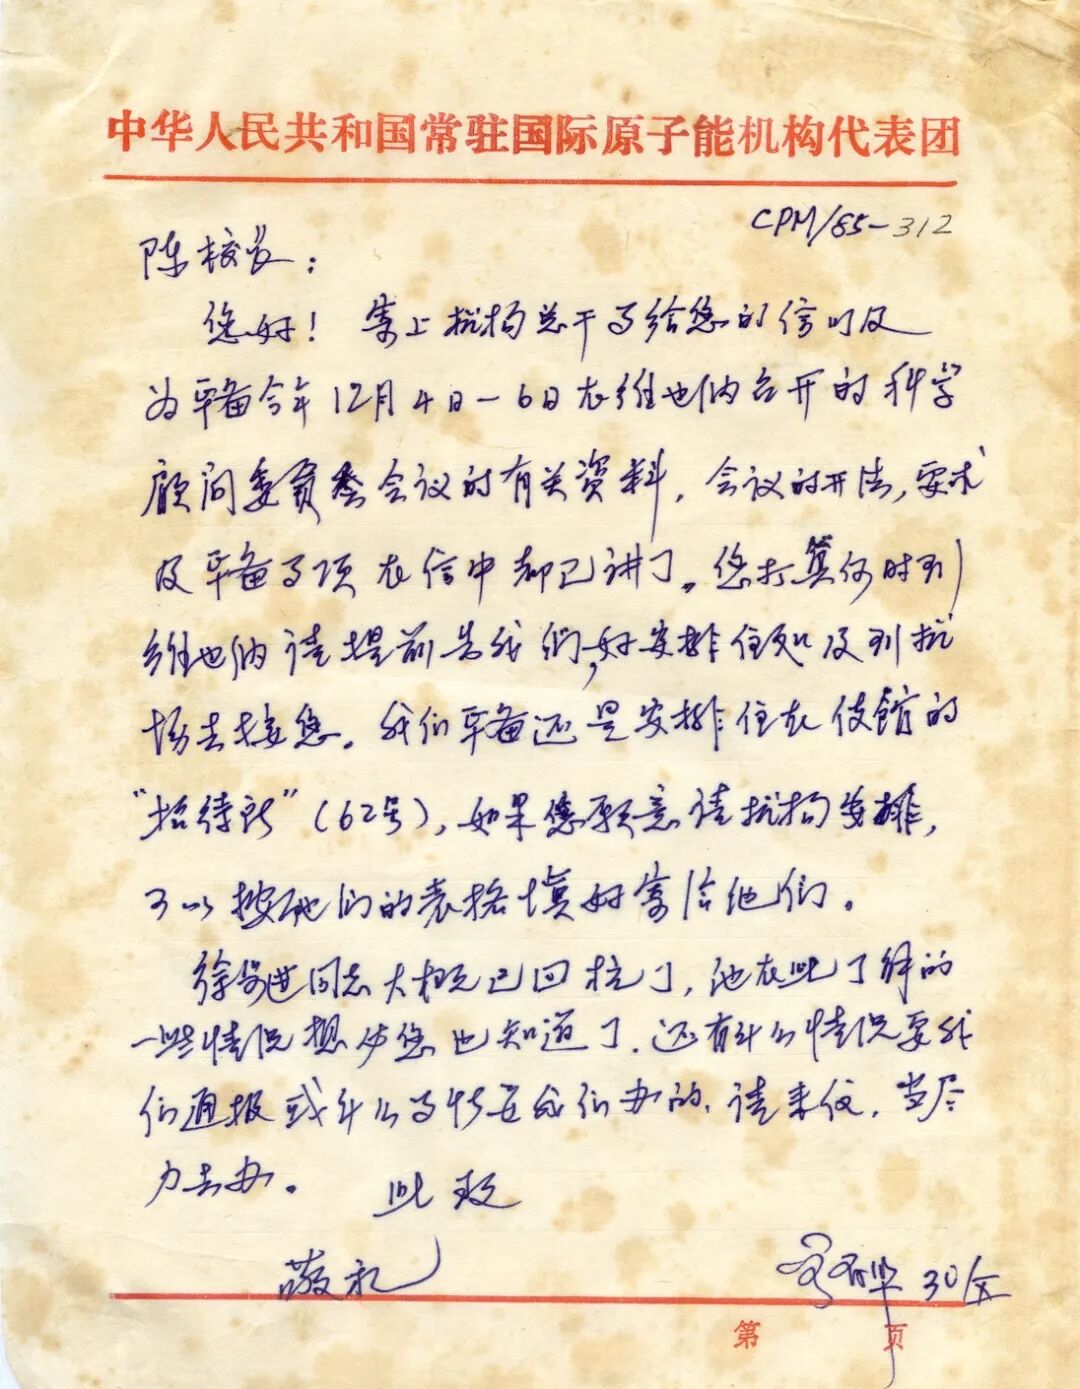 中华人民共和国常驻国际原子能机构代表团
CPM/85-312
陈校长：
您好！寄上机构总干事给您的信以及
为准备今年12月4日-6日在维也纳召开的科学
顾问委员会会议的有关资料，会议的开法，要求
及准备事项在信中都已讲了。您打算何时到
维也纳请提前告我们，好安排住处及到机
场去接您。我们准备还是安排住在使馆的
“招待所”（62号），如果您愿意请机构安排，
可以按他们的表格填好寄给他们。
徐 同志大概已回杭了，他在此了解的
一些情况想必您也知道了，还有什么情况要我
们通报或什么事情要我们办的，请来信，当尽
力去办。 此致
敬礼
30/
第 页